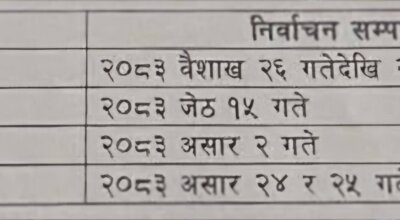 निर्वाचन सम्प
२०८३ वैशाख २६ गतेदेखि
२०८३ जेठ १५ गते
२०८३ असार २ गते
२०८३ असार २४ र २५ गते